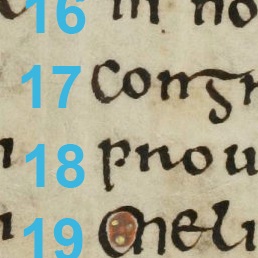 16 in no
17 Congr
18 pnou
19 Oneli